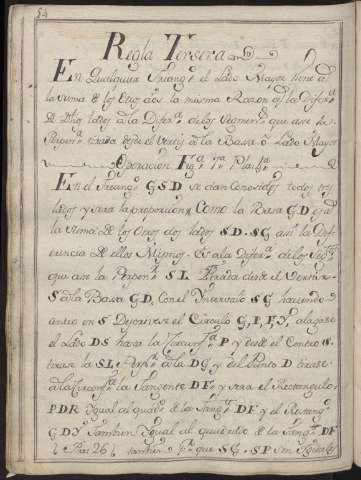 54
Regla Tersera
En Qualquier Triangº el Lado Mayor tiene á
la suma de los Otros dos la misma Razon q la Difera
de dhos lados á la Difera de los Segmentos que ase la
Perpenr tirada desde el Vertiz á la Bassa ó Lado Mayor
Operacion Figa Plaa
En el Triangº GSD se dan Conosidos todos tres
lados y sera la proporcion Como la Basa GD es á
la Suma de los Otros dos lados SD. SG asi la Dif
erencia de ellos Mismos es á la Difera de los Segtos
que ase la Perpenr SI. Tirada desde el Vertize
S á la Basa GD, Con el Yntervalo SG haciendo
centro en S Descrivese el Circulo G, P, F, Y, alagase
el Lado DS hasta la Circunfa P y desde el Centro S.
tirase la SI. Perpr á la DG y del Punto D tirase
á la Circunfa la Tangente DF, y sera el Rectangulo
PDR Ygual al quadº de la Tangte DF y el Rectangº
GDY tambien Ygual al quadrado de la Tangte DF
26 tambien SG. SP son Yguales